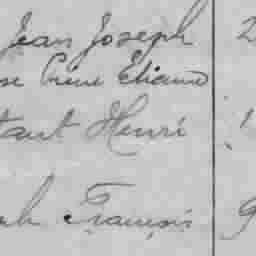 Jean Joseph 2
se Etienne
tant Henri
ph François 9